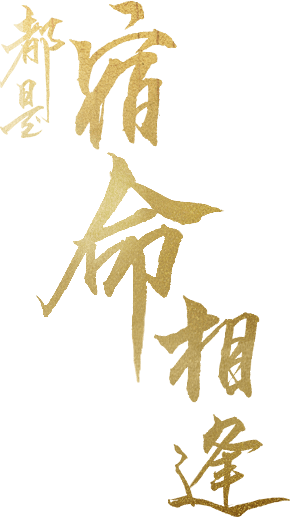 都是
宿命相逢